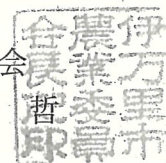 伊万里市
農業委員
会長之印
哲
会